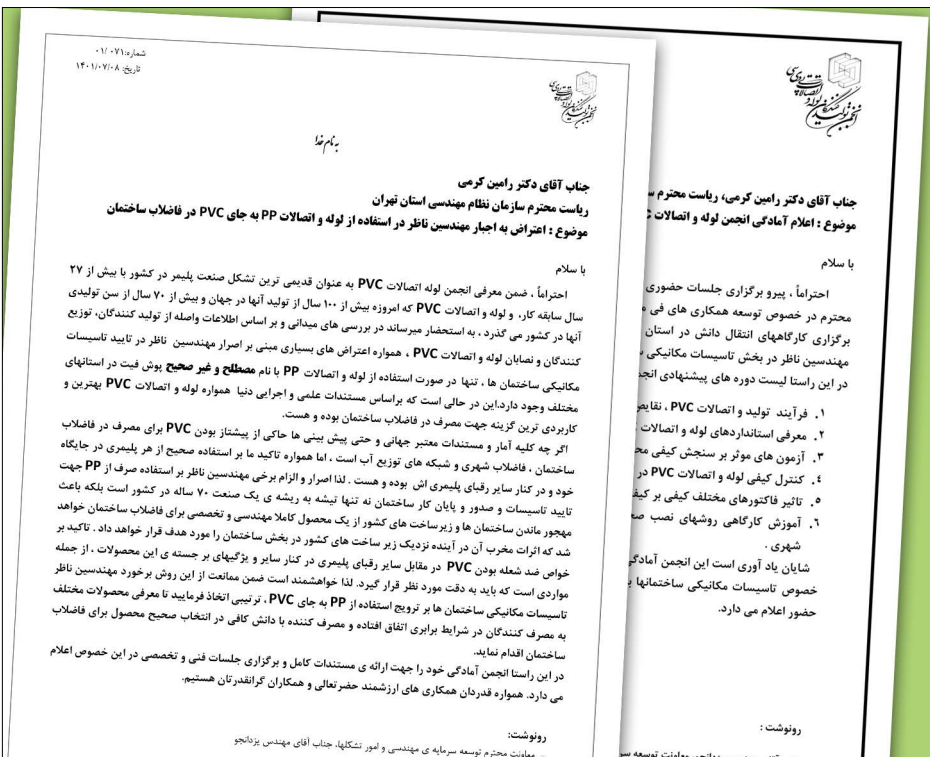 شماره:۰۷۱/ ۰۱
تاریخ: ۱۴۰۱/۰۷/۰۸
انجمن تولیدکنندگان لوله و اتصالات پی وی سی
به نام خدا
جناب آقای دکتر رامین کرمی
ریاست محترم سازمان نظام مهندسی استان تهران
موضوع : اعتراض به اجبار مهندسین ناظر در استفاده از لوله و اتصالات PP به جای PVC در فاضلاب ساختمان
با سلام
احتراماً ، ضمن معرفی انجمن لوله اتصالات PVC به عنوان قدیمی ترین تشکل صنعت پلیمر در کشور با بیش از ۲۷
سال سابقه کار، و لوله و اتصالات PVC که امروزه بیش از ۱۰۰ سال از تولید آنها در جهان و بیش از ۷۰ سال از سن تولیدی
آنها در کشور می گذرد ، به استحضار میرساند در بررسی های میدانی و بر اساس اطلاعات واصله از تولید کنندگان، توزیع
کنندگان و نصابان لوله و اتصالات PVC ، همواره اعتراض های بسیاری مبنی بر اصرار مهندسین ناظر در تایید تاسیسات
مکانیکی ساختمان ها ، تنها در صورت استفاده از لوله و اتصالات PP با نام مصطلح و غیر صحیح پوش فیت در استانهای
مختلف وجود دارد.این در حالی است که براساس مستندات علمی و اجرایی دنیا همواره لوله و اتصالات PVC بهترین و
کاربردی ترین گزینه جهت مصرف در فاضلاب ساختمان بوده و هست.
اگر چه کلیه آمار و مستندات معتبر جهانی و حتی پیش بینی ها حاکی از پیشتاز بودن PVC برای مصرف در فاضلاب
ساختمان ، فاضلاب شهری و شبکه های توزیع آب است ، اما همواره تاکید ما بر استفاده صحیح از هر پلیمری در جایگاه
خود و در کنار سایر رقبای پلیمری اش بوده و هست . لذا اصرار و الزام برخی مهندسین ناظر بر استفاده صرف از PP جهت
تایید تاسیسات و صدور و پایان کار ساختمان نه تنها تیشه به ریشه ی یک صنعت ۷۰ ساله در کشور است بلکه باعث
مهجور ماندن ساختمان ها و زیرساخت های کشور از یک محصول کاملا مهندسی و تخصصی برای فاضلاب ساختمان خواهد
شد که اثرات مخرب آن در آینده نزدیک زیر ساخت های کشور در بخش ساختمان را مورد هدف قرار خواهد داد . تاکید بر
خواص ضد شعله بودن PVC در مقابل سایر رقبای پلیمری در کنار سایر و یژگیهای بر جسته ی این محصولات ، از جمله
مواردی است که باید به دقت مورد نظر قرار گیرد. لذا خواهشمند است ضمن ممانعت از این روش برخورد مهندسین ناظر
تاسیسات مکانیکی ساختمان ها بر ترویج استفاده از PP به جای PVC ، ترتیبی اتخاذ فرمایید تا معرفی محصولات مختلف
به مصرف کنندگان در شرایط برابری اتفاق افتاده و مصرف کننده با دانش کافی در انتخاب صحیح محصول برای فاضلاب
ساختمان اقدام نماید.
در این راستا انجمن آمادگی خود را جهت ارائه ی مستندات کامل و برگزاری جلسات فنی و تخصصی در این خصوص اعلام
می دارد. همواره قدردان همکاری های ارزشمند حضرتعالی و همکاران گرانقدرتان هستیم.
رونوشت:
معاونت محترم توسعه سرمایه ی مهندسی و امور تشکلها، جناب آقای مهندس یزدانجو
انجمن تولیدکنندگان لوله و اتصالات پی وی سی
جناب آقای دکتر رامین کرمی، ریاست محترم
موضوع : اعلام آمادگی انجمن لوله و اتصالات
با سلام
احتراماً ، پیرو برگزاری جلسات حضوری
محترم در خصوص توسعه همکاری های فی
برگزاری کارگاههای انتقال دانش در استان
مهندسین ناظر در بخش تاسیسات مکانیکی
در این راستا لیست دوره های پیشنهادی
۱. فرآیند تولید و اتصالات PVC ،
۲. معرفی استانداردهای لوله و اتصالات
۳. آزمون های موثر بر سنجش کیفی
۴. کنترل کیفی لوله و اتصالات PVC در
۵. تاثیر فاکتورهای مختلف کیفی بر
۶. آموزش کارگاهی روشهای نصب
شهری .
شایان یاد آوری است این انجمن
خصوص تاسیسات مکانیکی ساختمانها
حضور اعلام می دارد.
رونوشت :
معاونت توسعه